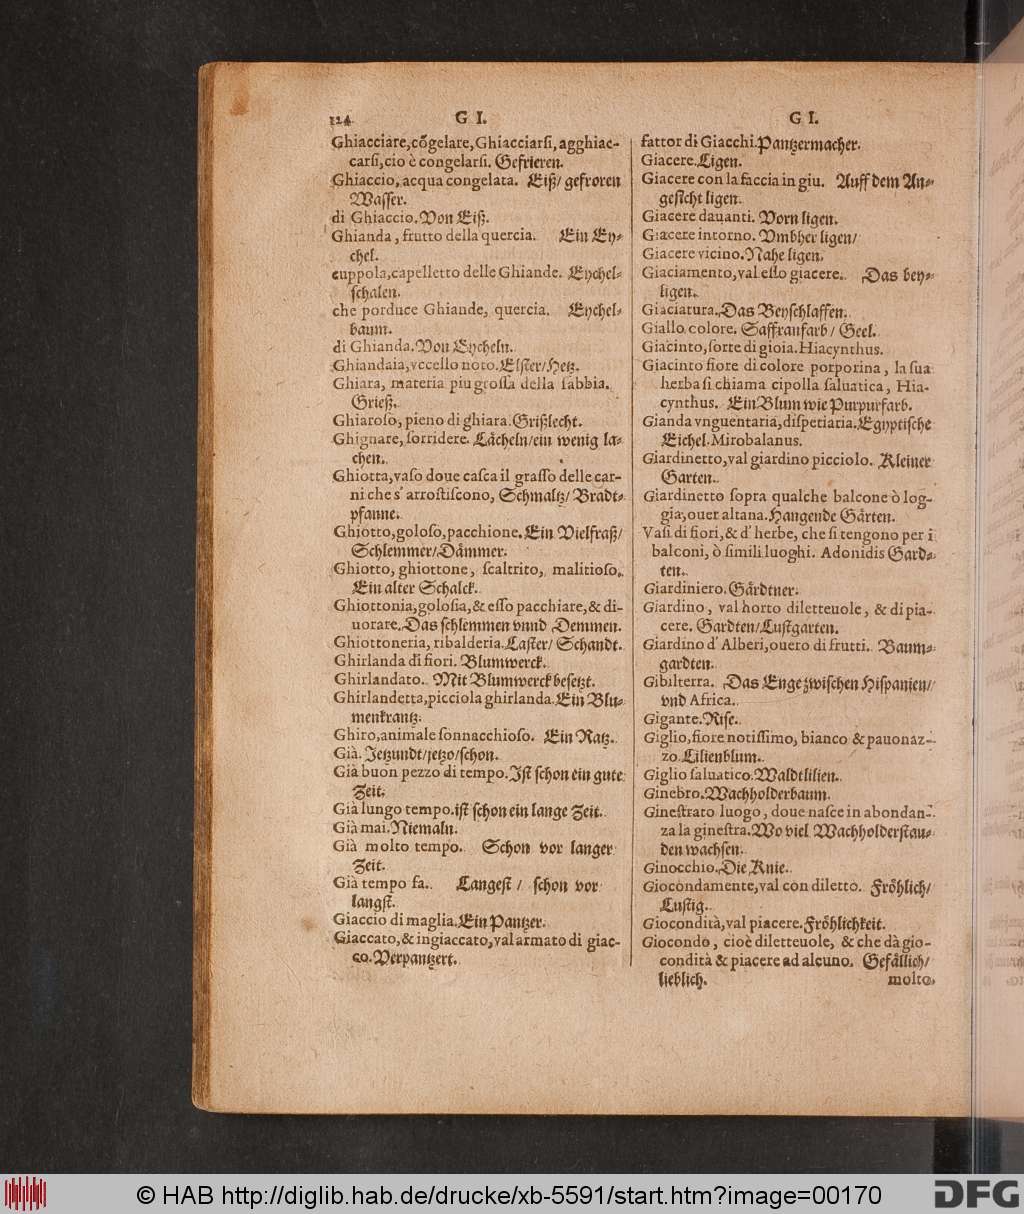 124 G I. G I.
Ghiacciare, cõgelare, Ghiacciarſi, agghiac-
carſi, cio è congelarſi. Gefrieren.
Ghiaccio, acqua congelata. Eiß/ gefroren
Waſſer.
di Ghiaccio. Von Eiß.
Ghianda, frutto della quercia. Ein Ey-
chel.
cuppola, capelletto delle Ghiande. Eychel-
ſchalen.
che porduce Ghiande, quercia. Eychel-
baum.
di Ghianda. Von Eycheln.
Ghiandaia, vccello noto. Elſter/ Hetz.
Ghiara, materia piu groſſa della ſabbia.
Grieß.
Ghiaroſo, pieno di ghiara. Grißlecht.
Ghignare, ſorridere. Laͤcheln/ ein wenig la-
chen.
Ghiotta, vaſo doue caſca il graſſo delle car-
ni che s' arroſtiſcono, Schmaltz/ Bradt-
pfanne.
Ghiotto, goloſo, pacchione. Ein Vielfraß/
Schlemmer/ Daͤmmer.
Ghiotto, ghiottone, ſcaltrito, malitioſo.
Ein alter Schalck.
Ghiottonia, goloſia, & eſſo pacchiare, & di-
uorare. Das ſchlemmen vnnd Demmen.
Ghiottoneria, ribalderia. Laſter/ Schandt.
Ghirlanda di fiori. Blumwerck.
Ghirlandato. Mit Blumwerck beſetzt.
Ghirlandetta, picciola ghirlanda. Ein Blu-
menkrantz.
Ghiro, animale ſonnacchioſo. Ein Ratz.
Già. Jetzundt/ jetzo/ ſchon.
Già buon pezzo di tempo. Jſt ſchon ein gute
Zeit.
Già lungo tempo. iſt ſchon ein lange Zeit.
Già mai. Niemaln.
Già molto tempo. Schon vor langer
Zeit.
Già tempo fa. Langeſt / ſchon vor
langſt.
Giaccio di maglia. Ein Pantzer.
Giaccato, & ingiaccato, val armato di giac-
co. Verpantzert.
fattor di Giacchi. Pantzermacher.
Giacere. Ligen.
Giacere con la faccia in giu. Auff dem An-
geſicht ligen.
Giacere dauanti. Vorn ligen.
Giacere intorno. Vmbher ligen/
Giacere vicino. Nahe ligen.
Giaciamento, val eſſo giacere. Das bey-
ligen.
Giaciatura. Das Beyſchlaffen.
Giallo colore. Saffranfarb / Geel.
Giacinto, ſorte di gioia. Hiacynthus.
Giacinto fiore di colore porporina, la ſua
herba ſi chiama cipolla ſaluatica, Hia-
cynthus. Ein Blum wie Purpurfarb.
Gianda vnguentaria, diſpetiaria. Egyptiſche
Eichel. Mirobalanus.
Giardinetto, val giardino picciolo. Kleiner
Garten.
Giardinetto ſopra qualche balcone ò log-
gia, ouer altana. Hangende Gaͤrten.
Vaſi di fiori, & d' herbe, che ſi tengono per i
balconi, ò ſimili luoghi. Adonidis Gard-
ten.
Giardiniero. Gaͤrdtner.
Giardino, val horto diletteuole, & di pia-
cere. Gardten/ Luſtgarten.
Giardino d' Alberi, ouero di frutti. Baum-
gardten.
Gibilterra. Das Enge zwiſchen Hiſpanien/
vnd Africa.
Gigante. Riſe.
Giglio, fiore notiſſimo, bianco & pauonaz-
zo. Lilienblum.
Giglio ſaluatico. Waldtlilien.
Ginebro. Wachholderbaum.
Gineſtrato luogo, doue naſce in abondan-
za la gineſtra. Wo viel Wachholderſtau-
den wachſen.
Ginocchio. Die Knie.
Giocondamente, val con diletto. Froͤhlich/
Luſtig.
Giocondità, val piacere. Froͤhlichkeit.
Giocondo, cioè diletteuole, & che dà gio-
condità & piacere ad alcuno. Gefaͤllich/
lieblich. molto,
© HAB http://diglib.hab.de/drucke/xb-5591/start.htm?image=00170
DFG